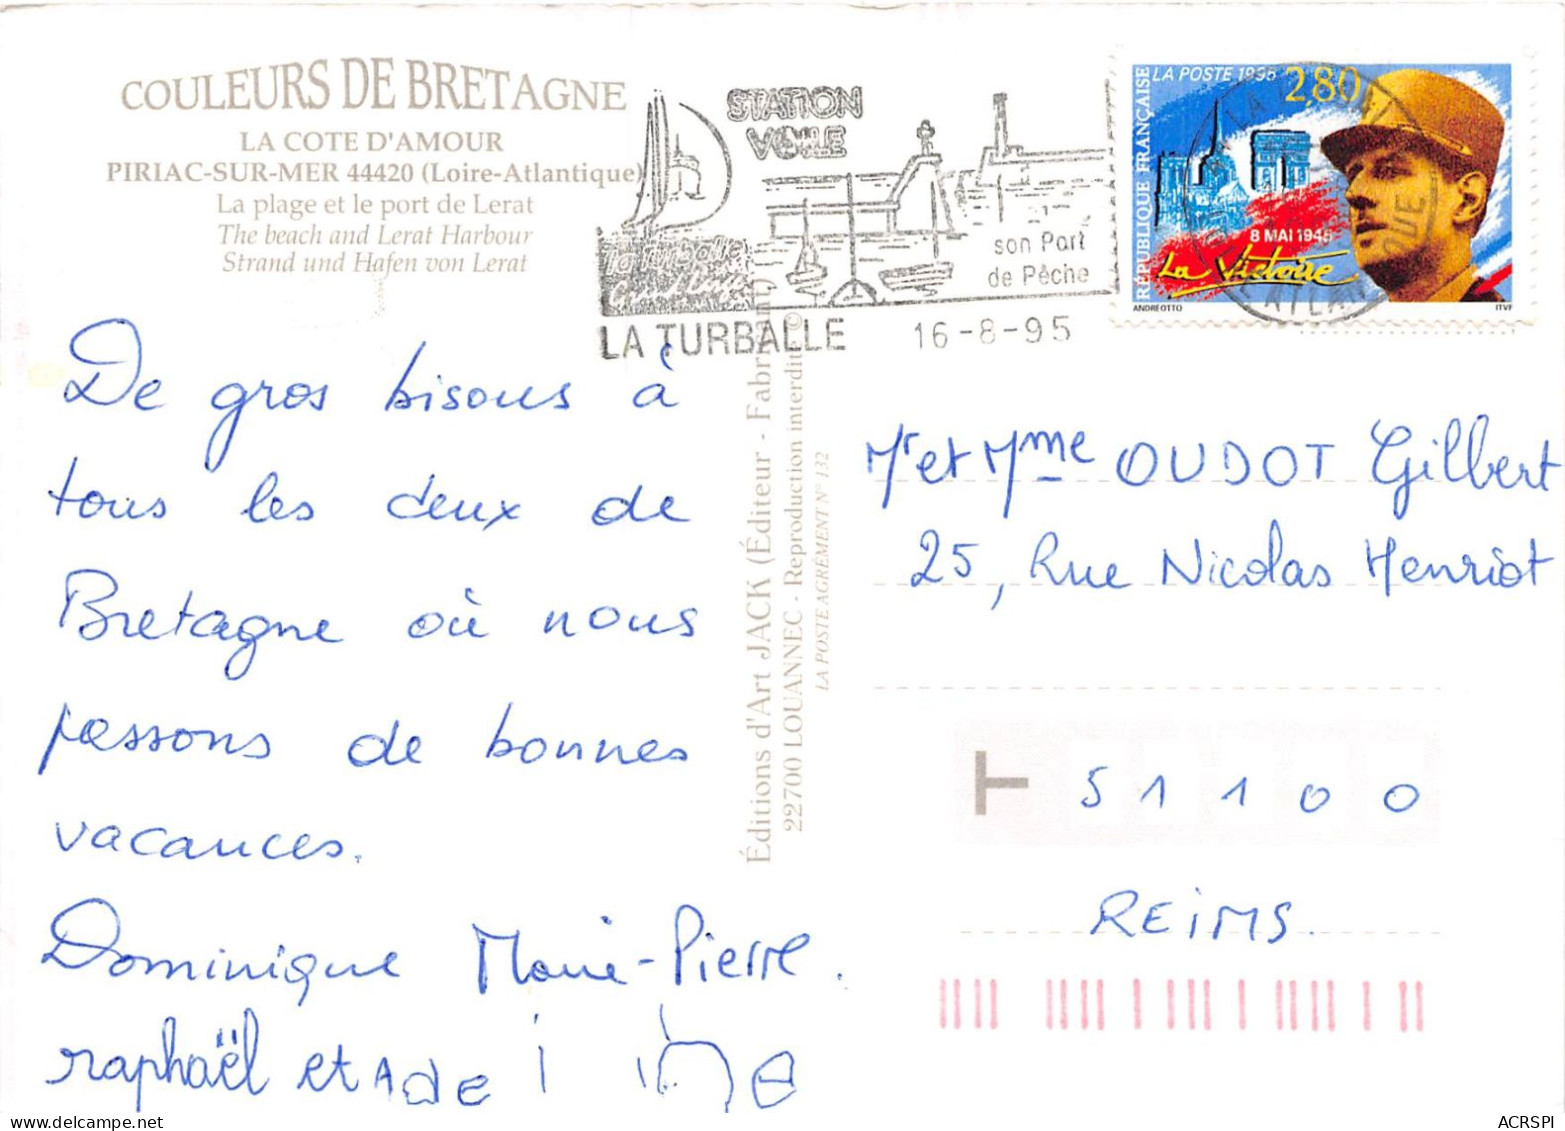 COULEURS DE BRETAGNE
LA COTE D'AMOUR
PIRIAC-SUR-MER 44420 (Loire-Atlantique)
La plage et le port de Lerat
The beach and Lerat Harbour
Strand und Hafen von Lerat
STATION
VOILE
son Port
de Pêche
LA TURBALLE 16-8-95
LA POSTE 1995 2,80
RÉPUBLIQUE FRANÇAISE
8 MAI 1945
La Victoire
ANDREOTTO ITVF
De gros bisous à
tous les deux de
Bretagne où nous
passons de bonnes
vacances.
Dominique Marie-Pierre.
raphaël et
Éditions d'Art JACK (Éditeur - Fabricant)
22700 LOUANNEC - Reproduction interdite ©
LA POSTE AGRÉMENT N° 132
Mr et Mme OUDOT Gilbert
25, Rue Nicolas Henriot
51100
REIMS.
ACRSPI